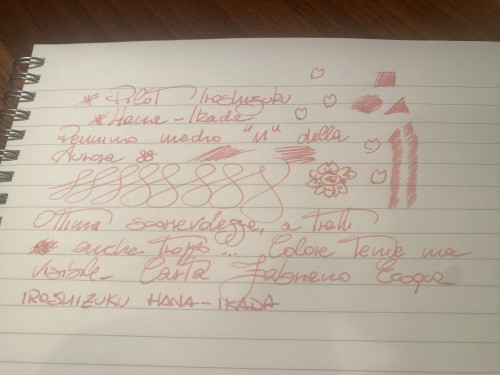 * Pilot Iroshizuku
* Hana-Ikada
Pennino medio "M" della
Aurora 88
Ottima scorrevolezza, a tratti
anche troppo... Colore tenue ma
visibile. Carta Fabriano Ecoqua
IROSHIZUKU HANA-IKADA